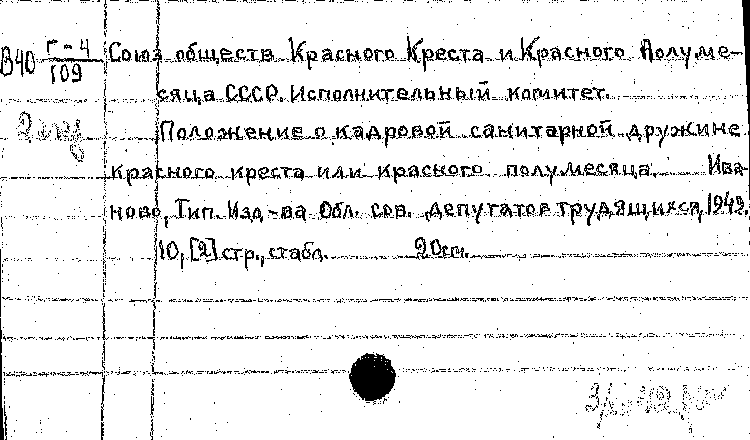 В40 Г-4/109 Союз обществ Красного Креста и Красного Полуме-
сяца СССР. Исполнительный комитет.
2 экз
Положение о кадровой санитарной дружине
красного креста или красного полумесяца. Ива-
ново, Тип. Изд-ва Обл. сов. депутатов трудящихся, 1949.
10, [2] стр., с табл. 20 см.